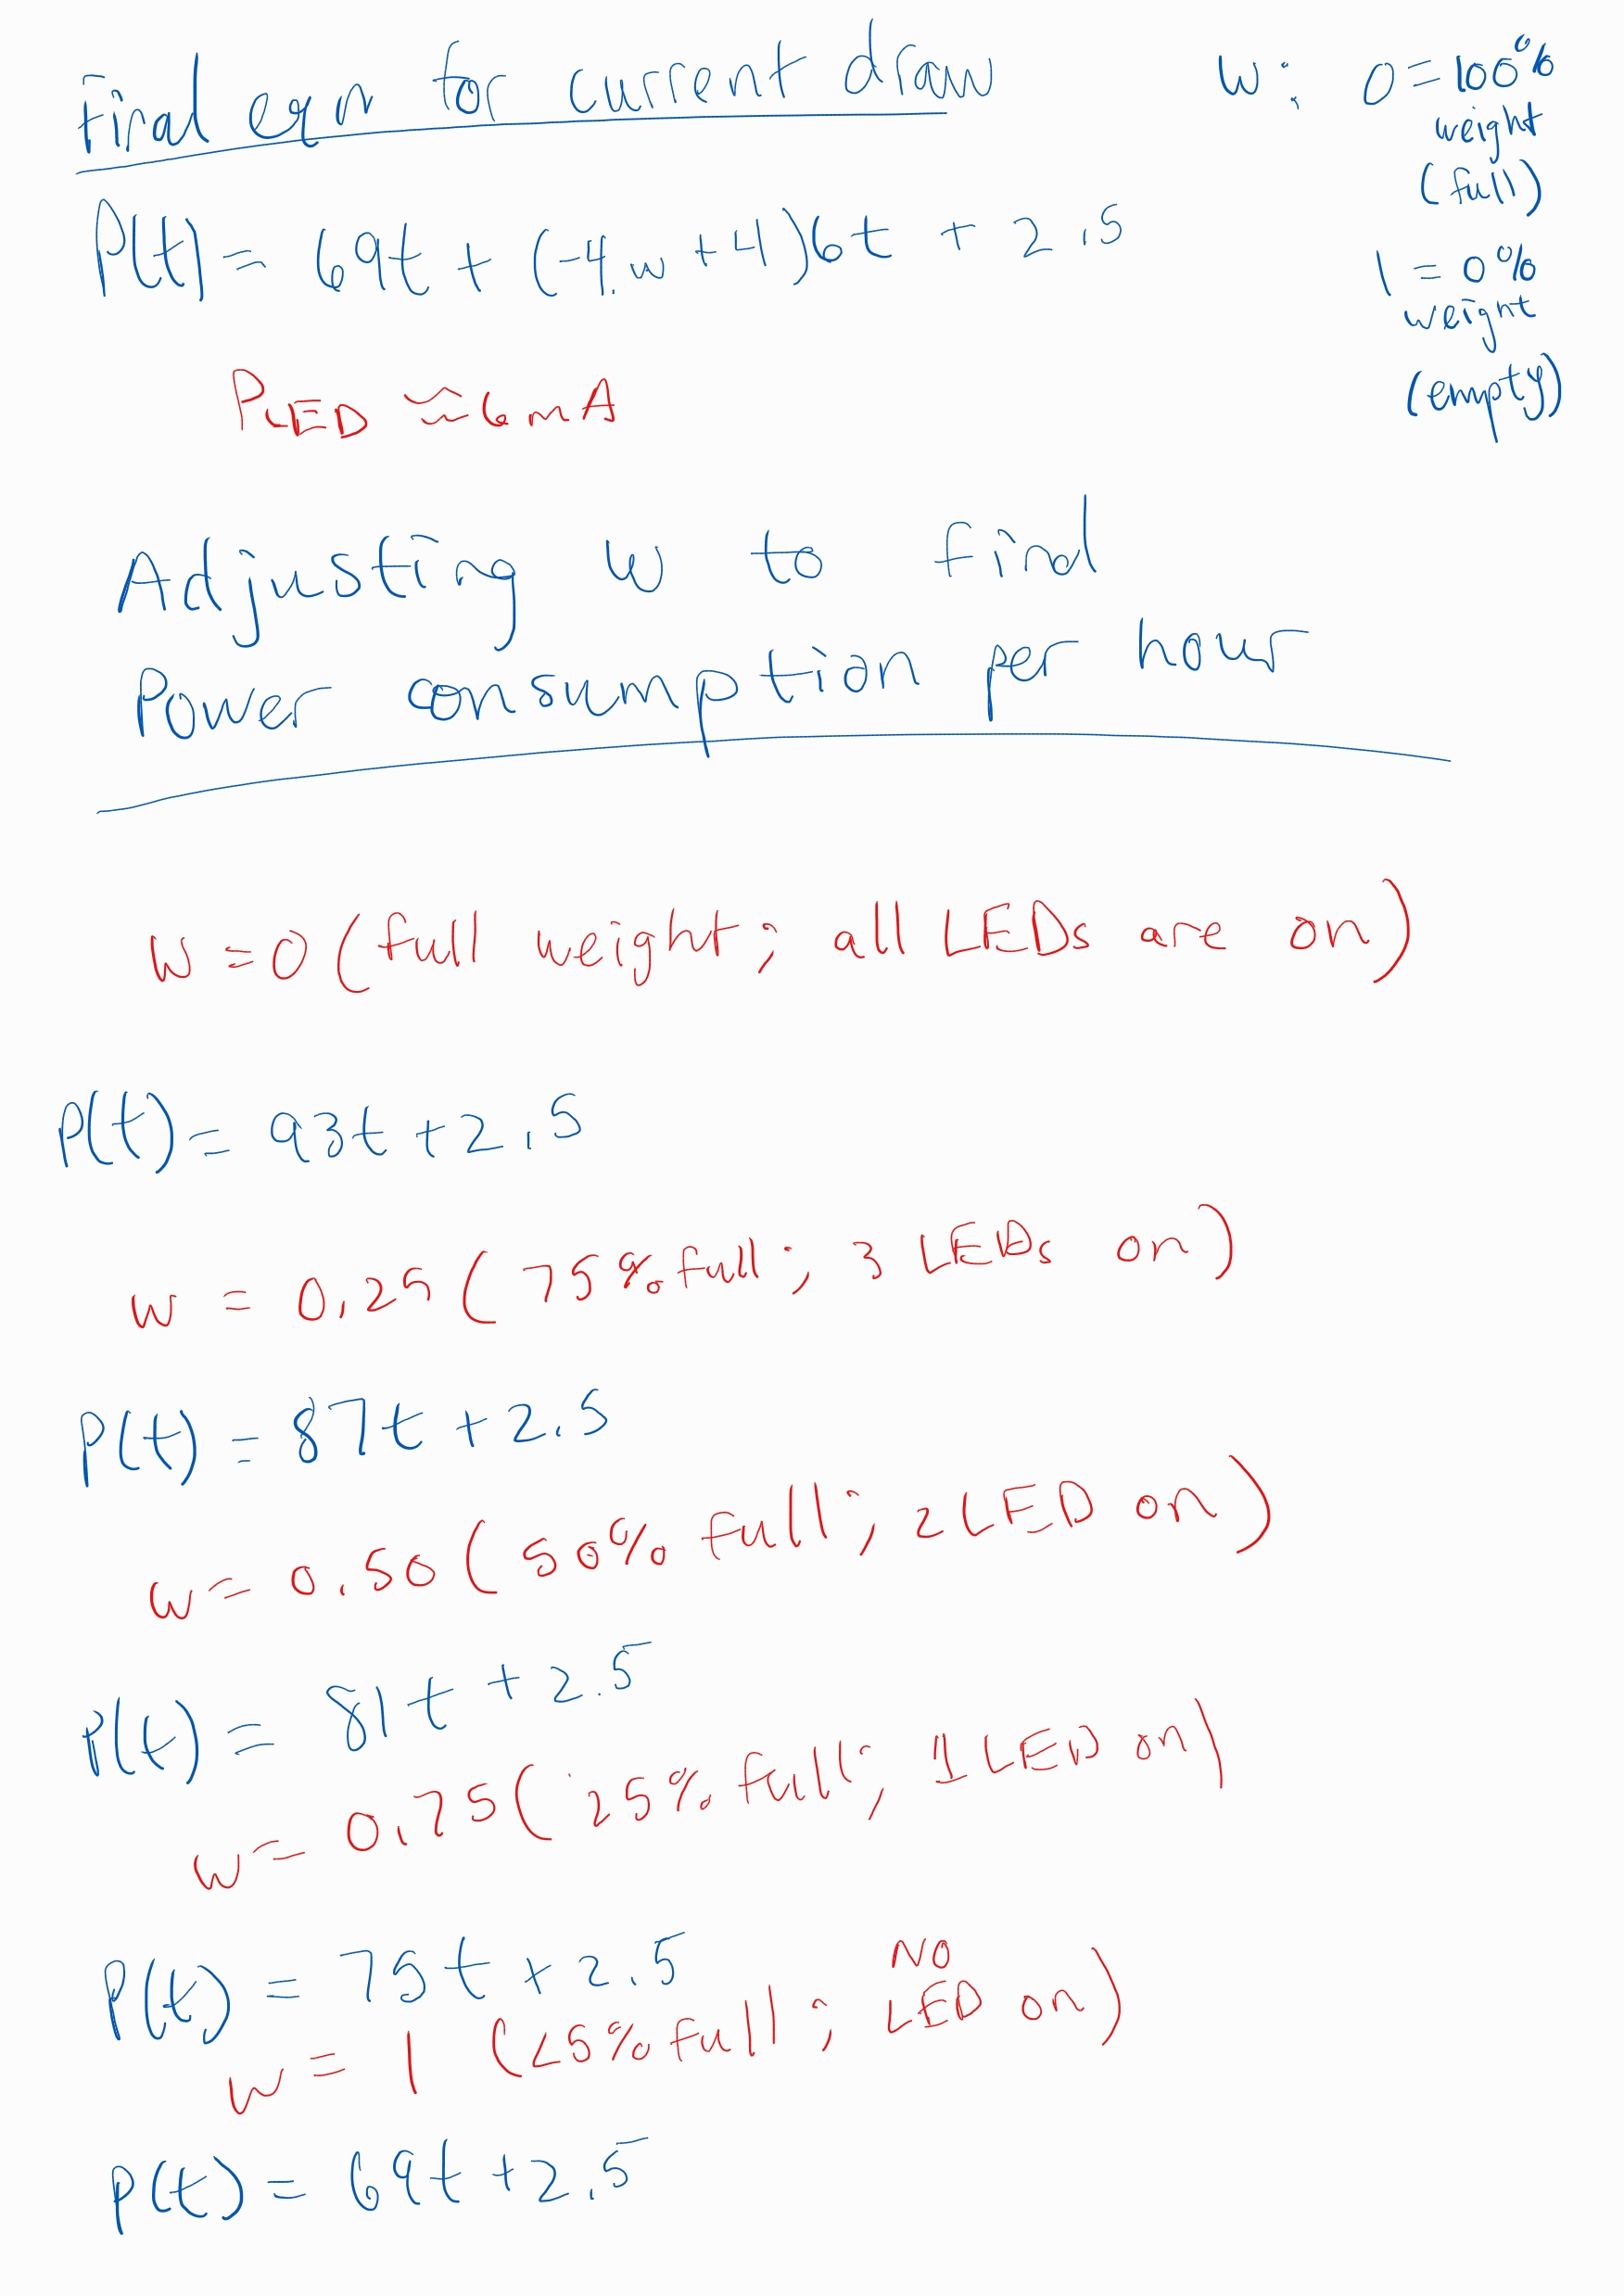 Final eqn for current draw
w: 0 = 100%
weight
(full)
1 = 0%
weight
(empty)
P(t) = 69t + (-4.w +4)6t + 2.5
PLED ≈ 6mA
Adjusting w to find
Power consumption per hour
W = 0 (full weight; all LEDs are on)
P(t) = 93t + 2.5
w = 0.25 (75% full; 3 LEDs on)
P(t) = 87t + 2.5
w = 0.50 (50% full; 2 LED on)
P(t) = 81t + 2.5
w = 0.75 (25% full; 1 LED on)
P(t) = 75t + 2.5
w = 1 (<5% full; NO LED on)
P(t) = 69t + 2.5